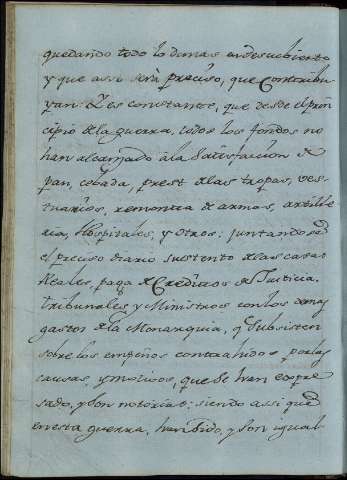 quedando todo lo demas en descubierto
y que assi será preciso, que Contribu
yan. Y es constante, que desde el prin
cipio de la guerra, todos los fondos no
han alcanzado à la Satisfacion de
pan, cebada, prest de las tropas, ves-
tuarios, remonta de armas, artille
ria, Hospitales, y otros: juntando se
el preciso diario sustento de las casas
Reales, paga de Creditos de Justicia,
tribunales y Ministros con los demas
gastos de la Monarquia, q.e Subsisten
sobre los empeños contrahidos por las
causas, y motivos, que se han expre
sado, y son notorios: siendo assi que
en esta guerra, han sido, y son igual